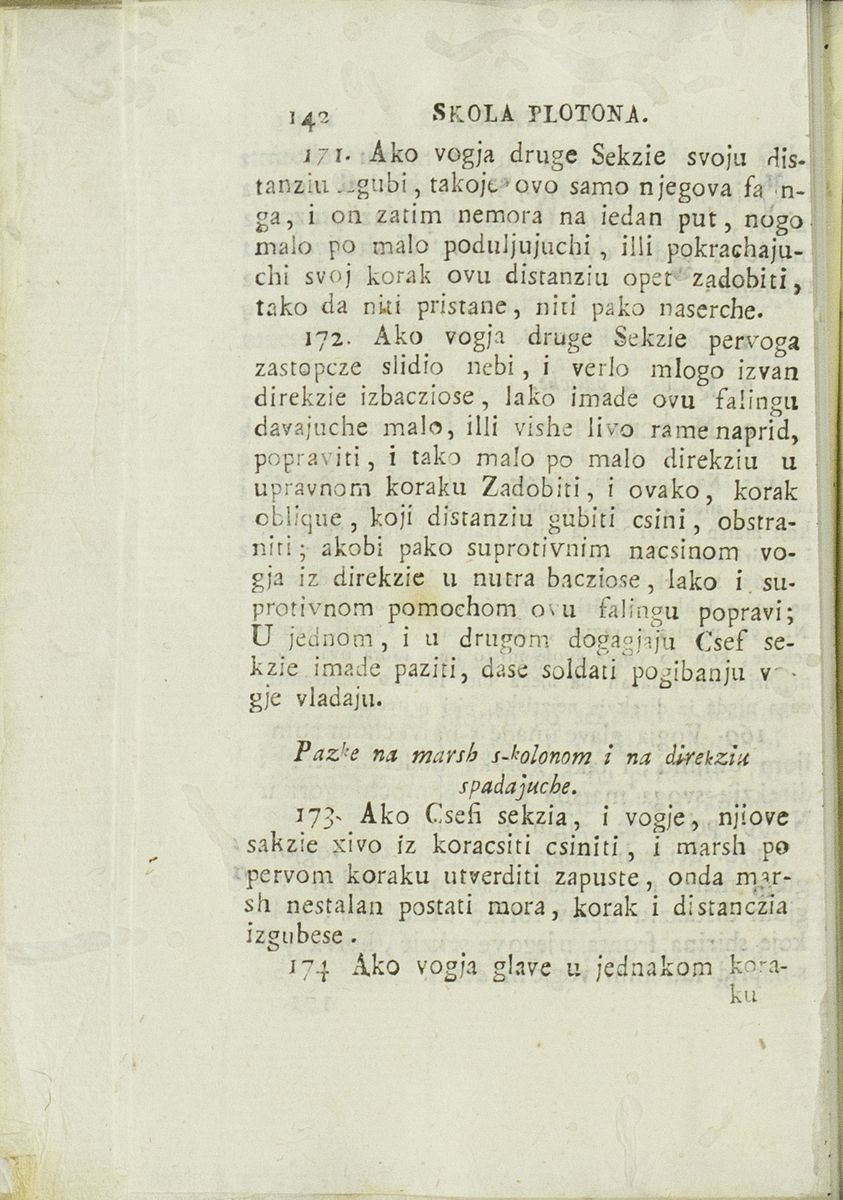 142 SKOLA PLOTONA.
171. Ako vogja druge Sekzie svoju dis-
tanziu gubi, takoje ovo samo njegova
ga, i on zatim nemora na iedan put, nogo
malo po malo poduljujuchi, illi pokrachaju-
chi svoj korak ovu distanziu opet zadobiti,
tako da niti pristane, niti pako naserche.
172. Ako vogja druge Sekzie pervoga
zastopcze slidio nebi, i verlo mlogo izvan
direkzie izbacziose, lako imade ovu falingu
davajuche malo, illi vishe livo rame naprid,
popraviti, i tako malo po malo direkziu u
upravnom koraku Zadobiti, i ovako, korak
oblique, koji distanziu gubiti csini, obstra-
niti; akobi pako suprotivnim nacsinom vo-
gja iz direkzie u nutra bacziose, lako i su-
protivnom pomochom ovu falingu popravi;
U jednom, i u drugom dogagjaju Csef se-
kzie imade paziti, dase soldati pogibanju
gje vladaju.
Pazke na marsh s-kolonom i na direkziu
spadajuche.
173. Ako Csefi sekzia, i vogje, njiove
sakzie xivo iz koracsiti csiniti, i marsh po
pervom koraku utverditi zapuste, onda mar-
sh nestalan postati mora, korak i distanczia
izgubese.
174 Ako vogja glave u jednakom kora-
ku